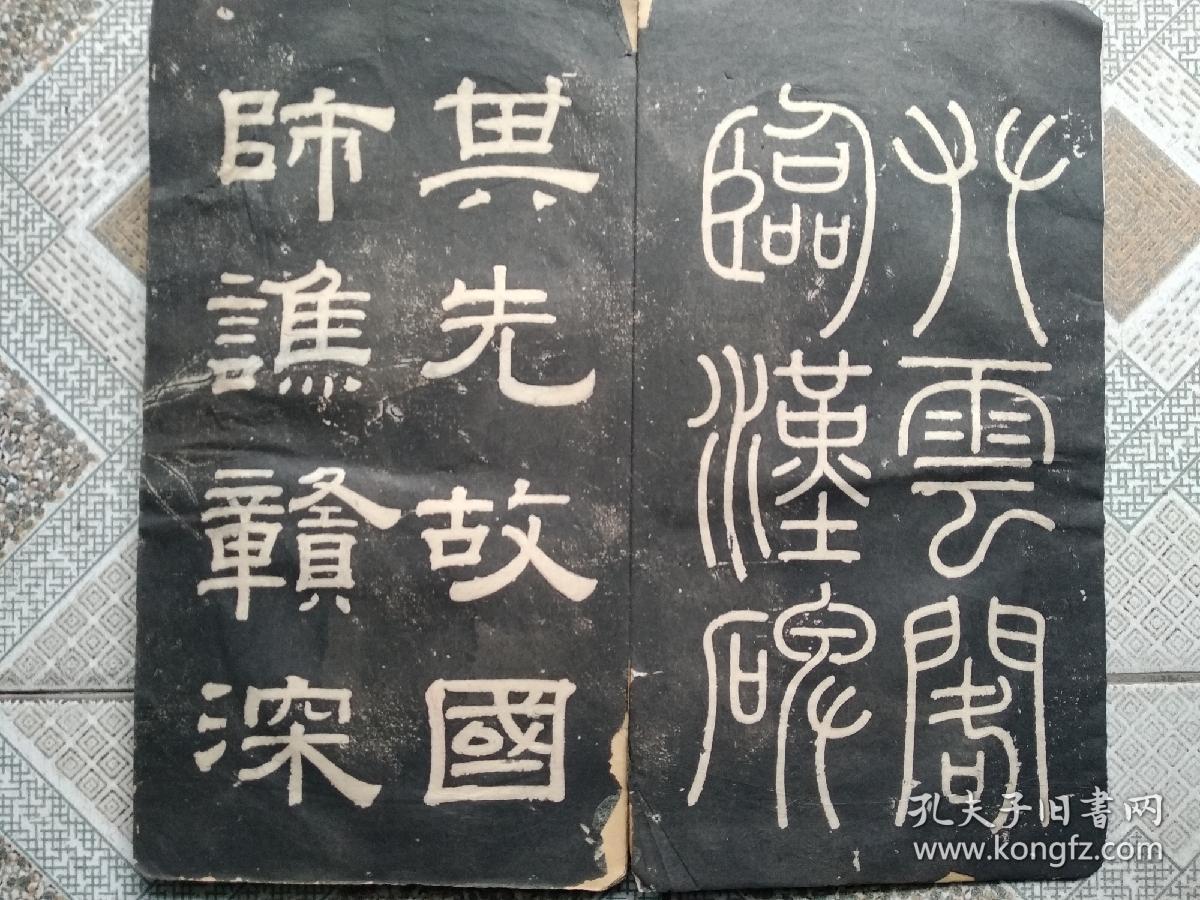 雲閣
臨漢碑
其先故國
師譙贛深
孔夫子旧书网
www.kongfz.com